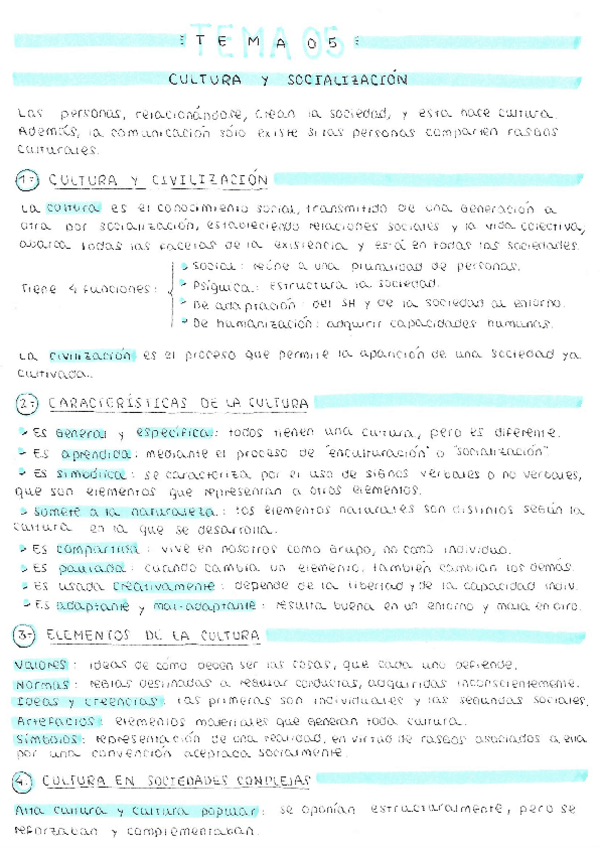 TEMA 05
TEMA 05
CULTURA Y SOCIALIZACIÓN
Las personas, relacionándose, crean la sociedad, y esta hace cultura.
Además, la comunicación sólo existe si las personas comparten rasgos
culturales.
1º) CULTURA Y CIVILIZACIÓN
La cultura es el conocimiento social, transmitido de una generación a
otra por socialización, estableciendo relaciones sociales y la vida colectiva,
abarca todas las facetas de la existencia y está en todas las sociedades.
Tiene 4 funciones:
Social: reúne a una pluralidad de personas.
Psíquica: estructura la sociedad.
De adaptación: del SH y de la sociedad al entorno.
De humanización: adquirir capacidades humanas.
La civilización es el proceso que permite la aparición de una sociedad ya
cultivada.
2º) CARACTERÍSTICAS DE LA CULTURA
Es general y específica: todos tienen una cultura, pero es diferente.
Es aprendida: mediante el proceso de "enculturación" o "socialización"
Es simbólica: se caracteriza por el uso de signos verbales o no verbales,
que son elementos que representan a otros elementos.
Somete a la naturaleza: los elementos naturales son distintos según la
cultura en la que se desarrolla.
Es compartida: vive en nosotros como grupo, no como individuo.
Es pautada: cuando cambia un elemento, también cambian los demás.
Es usada creativamente: depende de la libertad y de la capacidad indiv.
Es adaptante y mal-adaptante: resulta buena en un entorno y mala en otro.
3º) ELEMENTOS DE LA CULTURA
Valores: ideas de cómo deben ser las cosas, que cada uno defiende.
Normas: reglas destinadas a regular conductas, adquiridas inconscientemente.
Ideas y creencias: las primeras son individuales y las segundas sociales.
Artefactos: elementos materiales que generan toda cultura.
Símbolos: representación de una realidad, en virtud de rasgos asociados a ella
por una convención aceptada socialmente.
4. CULTURA EN SOCIEDADES COMPLEJAS
Alta cultura y cultura popular: se oponían estructuralmente, pero se
reforzaban y complementaban.